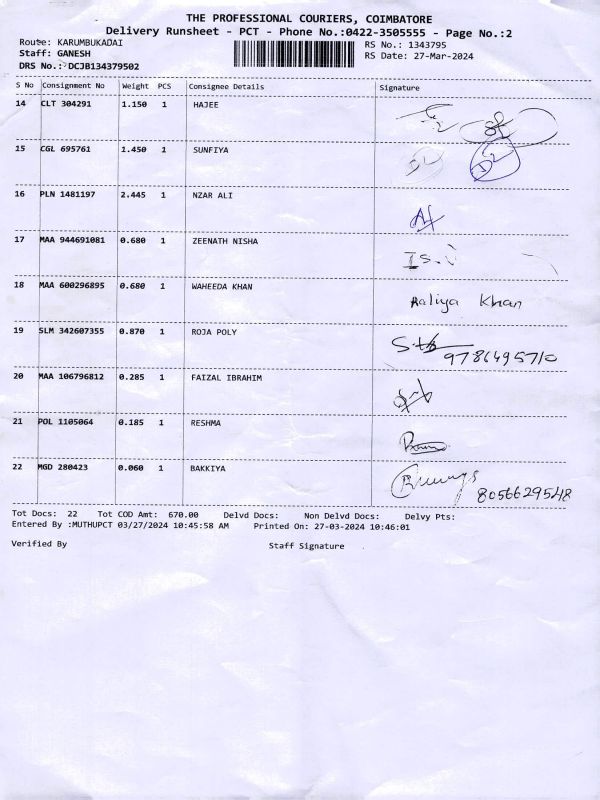 THE PROFESSIONAL COURIERS, COIMBATORE
Delivery Runsheet - PCT - Phone No.:0422-3505555 - Page No.:2
Route: KARUMBUKADAI
RS No.: 1343795
Staff: GANESH
RS Date: 27-Mar-2024
DRS No.: DCJB134379502
S No Consignment No Weight PCS Consignee Details Signature
14 CLT 304291 1.150 1 HAJEE
15 CGL 695761 1.450 1 SUNFIYA
16 PLN 1481197 2.445 1 NZAR ALI
17 MAA 944691081 0.680 1 ZEENATH NISHA
18 MAA 600296895 0.680 1 WAHEEDA KHAN
Aaliya Khan
19 SLM 342607355 0.870 1 ROJA POLY
9786495710
20 MAA 106796812 0.285 1 FAIZAL IBRAHIM
21 POL 1105064 0.185 1 RESHMA
22 MGD 280423 0.060 1 BAKKIYA
8056629548
Tot Docs: 22 Tot COD Amt: 670.00 Delvd Docs: Non Delvd Docs: Delvy Pts:
Entered By :MUTHUPCT 03/27/2024 10:45:58 AM Printed On: 27-03-2024 10:46:01
Verified By Staff Signature